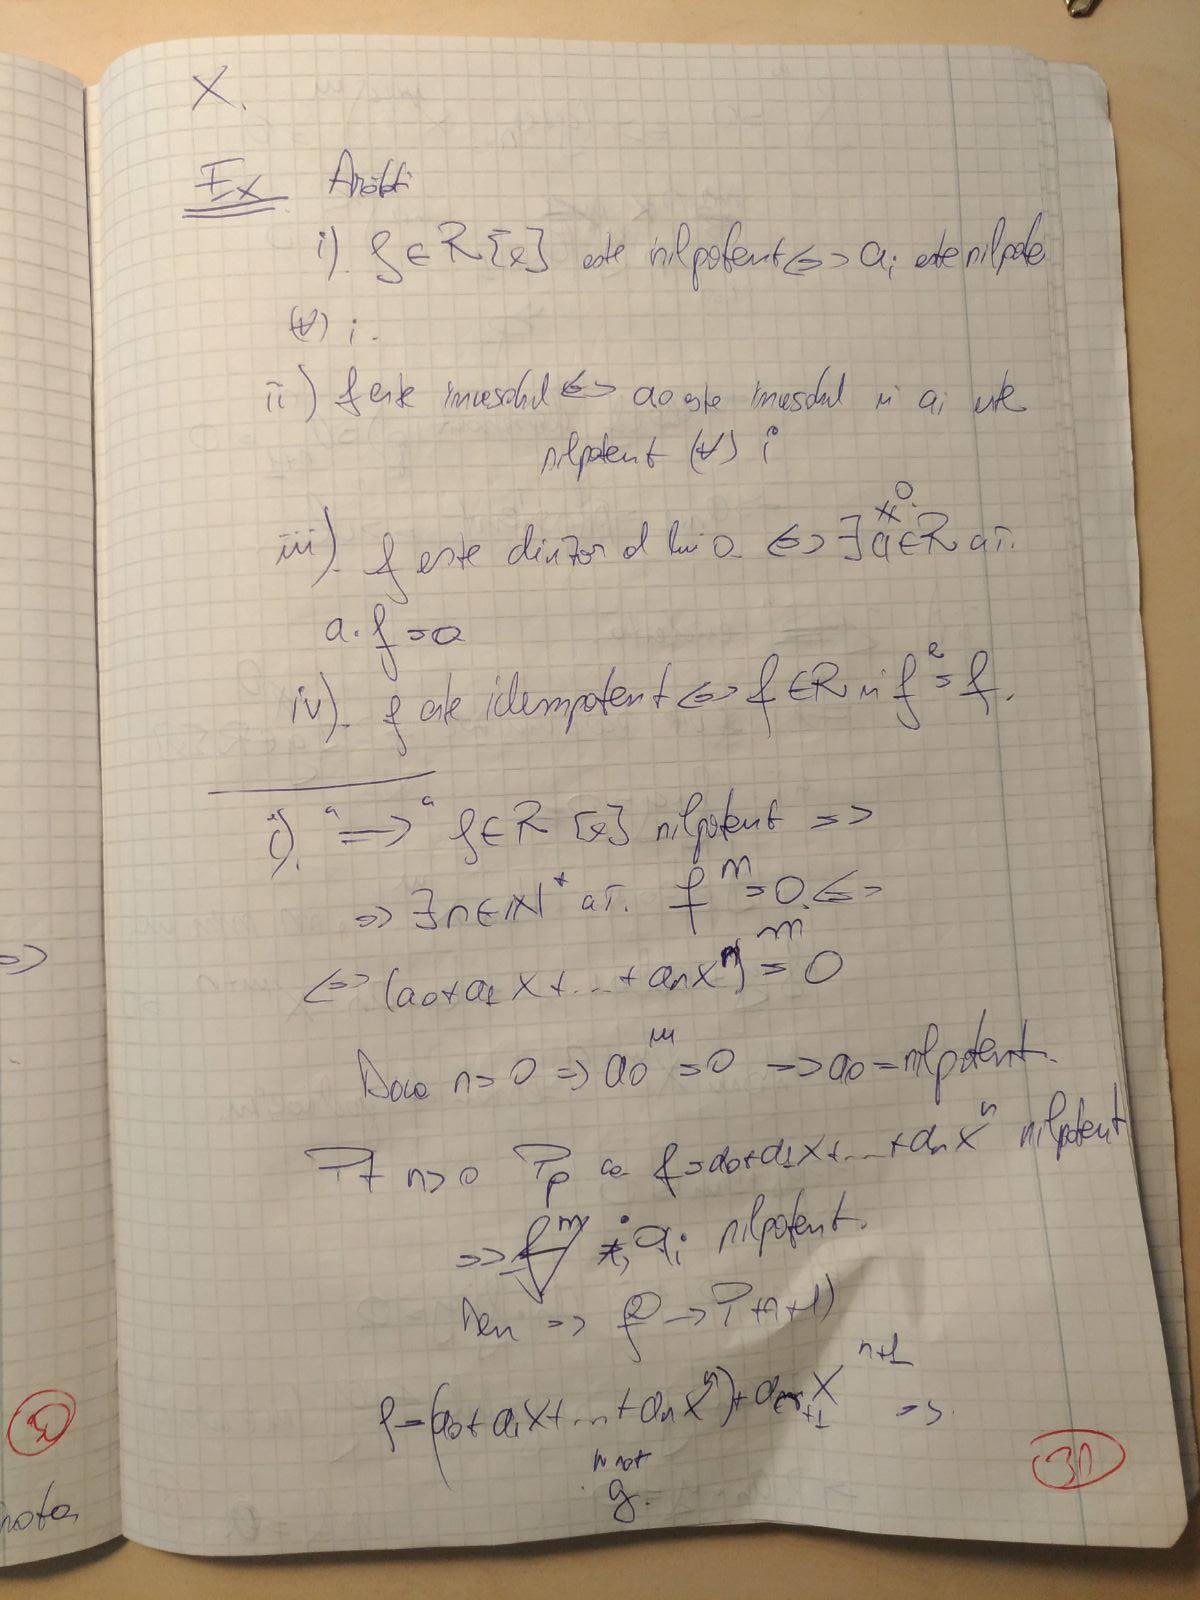 X.
Ex Arătăti
i). f∈R[x] este nilpotent <=> ai este nilpote
(∀) i.
ii) f este inversabil <=> a0 este inversabil și ai este
nilpotent (∀) i
iii). f este divizor al lui 0 <=> ∃ a≠0 ∈R aî.
a·f=0
iv). f este idempotent <=> f∈R și f²=f.
i). "=>" f∈R [x] nilpotent =>
=> ∃n∈ℕ* aî. f^m=0. <=>
<=> (a0+a1x+...+anx^n)^m=0
Daca n=0 => a0^m=0 => a0=nilpotent.
Pt n>0 Pp ca f=a0+a1x+...+anx^n nilpotent
=> ∀ i, ai nilpotent.
Dem => P -> P(n+1)
f=(a0+a1x+...+anx^n)+an+1 x^n+1 =>
not
g.
31
=>
30
nota